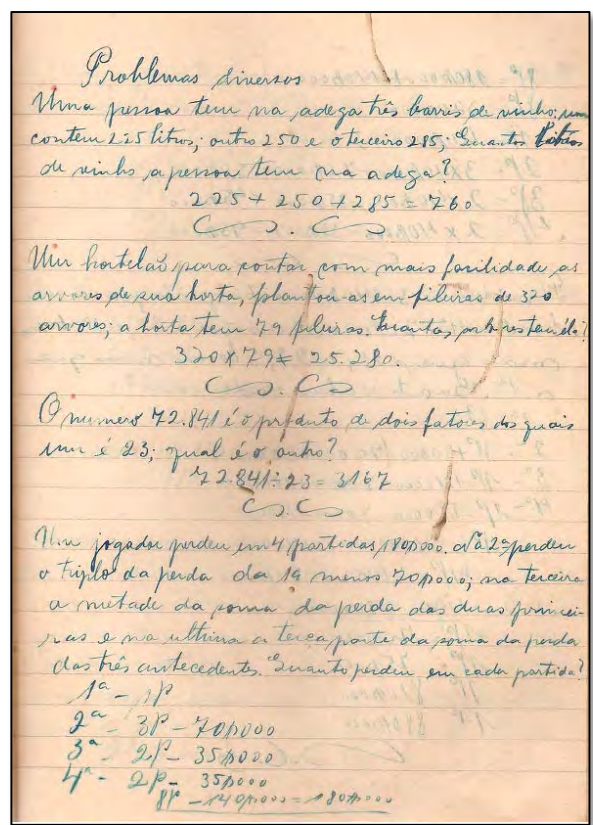 Problemas diversos
Uma pessoa tem na adega três barris de vinho; um
contem 225 litros; outro 250 e o terceiro 285; Quantos litros
de vinho a pessoa tem na adega?
225 + 250 + 285 = 760
Um hortelão para contar, com mais facilidade, as
arvores de sua horta, plantou-as em fileiras de 320
arvores; a horta tem 79 fileiras. Quantas arvores tem ela?
320 x 79 = 25.280.
O numero 72.841 é o produto de dois fatores dos quais
um é 23; qual é o outro?
72.841 ÷ 23 = 3167
Um jogador perdeu em 4 partidas, 180$000. Na 2ª perdeu
o triplo da perda da 1ª menos 70$000; na terceira
a metade da soma da perda das duas primei-
ras e na ultima a terça parte da soma da perda
das três antecedentes. Quanto perdeu em cada partida?
1ª - 1P
2ª - 3P - 70$000
3ª - 2P - 35$000
4ª - 2P - 35$000
8P - 140$000 = 180$000